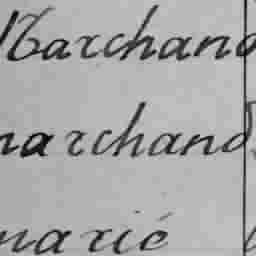 Marchand
marchand
marié